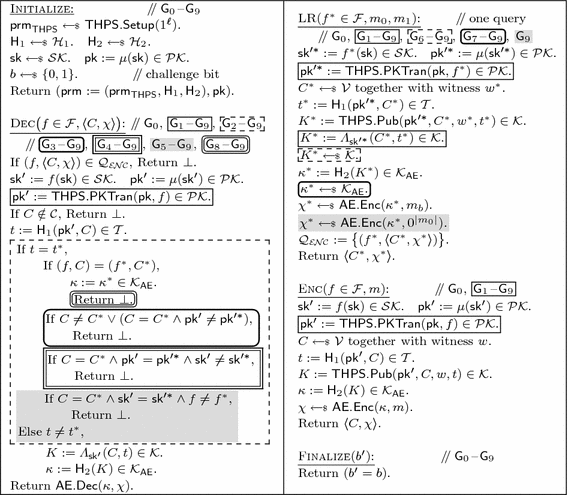 INITIALIZE: // G₀−G₉
prm_THPS ←$ THPS.Setup(1^ℓ).
H₁ ←$ ℋ₁. H₂ ←$ ℋ₂.
sk ←$ 𝒮𝒦. pk := μ(sk) ∈ 𝒫𝒦.
b ←$ {0, 1}. // challenge bit
Return (prm := (prm_THPS, H₁, H₂), pk).
DEC(f ∈ ℱ, ⟨C, χ⟩): // G₀, G₁−G₉, G₂−G₉
// G₃−G₉, G₄−G₉, G₅−G₉, G₈−G₉
If (f, ⟨C, χ⟩) ∈ 𝒬_ℰ𝒩𝒞, Return ⊥.
sk′ := f(sk) ∈ 𝒮𝒦. pk′ := μ(sk′) ∈ 𝒫𝒦.
pk′ := THPS.PKTran(pk, f) ∈ 𝒫𝒦.
If C ∉ 𝒞, Return ⊥.
t := H₁(pk′, C) ∈ 𝒯.
If t = t*,
If (f, C) = (f*, C*),
κ := κ* ∈ 𝒦_AE.
Return ⊥.
If C ≠ C* ∨ (C = C* ∧ pk′ ≠ pk′*),
Return ⊥.
If C = C* ∧ pk′ = pk′* ∧ sk′ ≠ sk′*,
Return ⊥.
If C = C* ∧ sk′ = sk′* ∧ f ≠ f*,
Return ⊥.
Else t ≠ t*,
K := Λ_sk′(C, t) ∈ 𝒦.
κ := H₂(K) ∈ 𝒦_AE.
Return AE.Dec(κ, χ).
LR(f* ∈ ℱ, m₀, m₁): // one query
// G₀, G₁−G₉, G₆−G₉, G₇−G₉, G₉
sk′* := f*(sk) ∈ 𝒮𝒦. pk′* := μ(sk′*) ∈ 𝒫𝒦.
pk′* := THPS.PKTran(pk, f*) ∈ 𝒫𝒦.
C* ←$ 𝒱 together with witness w*.
t* := H₁(pk′*, C*) ∈ 𝒯.
K* := THPS.Pub(pk′*, C*, w*, t*) ∈ 𝒦.
K* := Λ_sk′*(C*, t*) ∈ 𝒦.
K* ←$ 𝒦.
κ* := H₂(K*) ∈ 𝒦_AE.
κ* ←$ 𝒦_AE.
χ* ←$ AE.Enc(κ*, m_b).
χ* ←$ AE.Enc(κ*, 0^|m₀|).
𝒬_ℰ𝒩𝒞 := {(f*, ⟨C*, χ*⟩)}.
Return ⟨C*, χ*⟩.
ENC(f ∈ ℱ, m): // G₀, G₁−G₉
sk′ := f(sk) ∈ 𝒮𝒦. pk′ := μ(sk′) ∈ 𝒫𝒦.
pk′ := THPS.PKTran(pk, f) ∈ 𝒫𝒦.
C ←$ 𝒱 together with witness w.
t := H₁(pk′, C) ∈ 𝒯.
K := THPS.Pub(pk′, C, w, t) ∈ 𝒦.
κ := H₂(K) ∈ 𝒦_AE.
χ ←$ AE.Enc(κ, m).
Return ⟨C, χ⟩.
FINALIZE(b′): // G₀−G₉
Return (b′ = b).